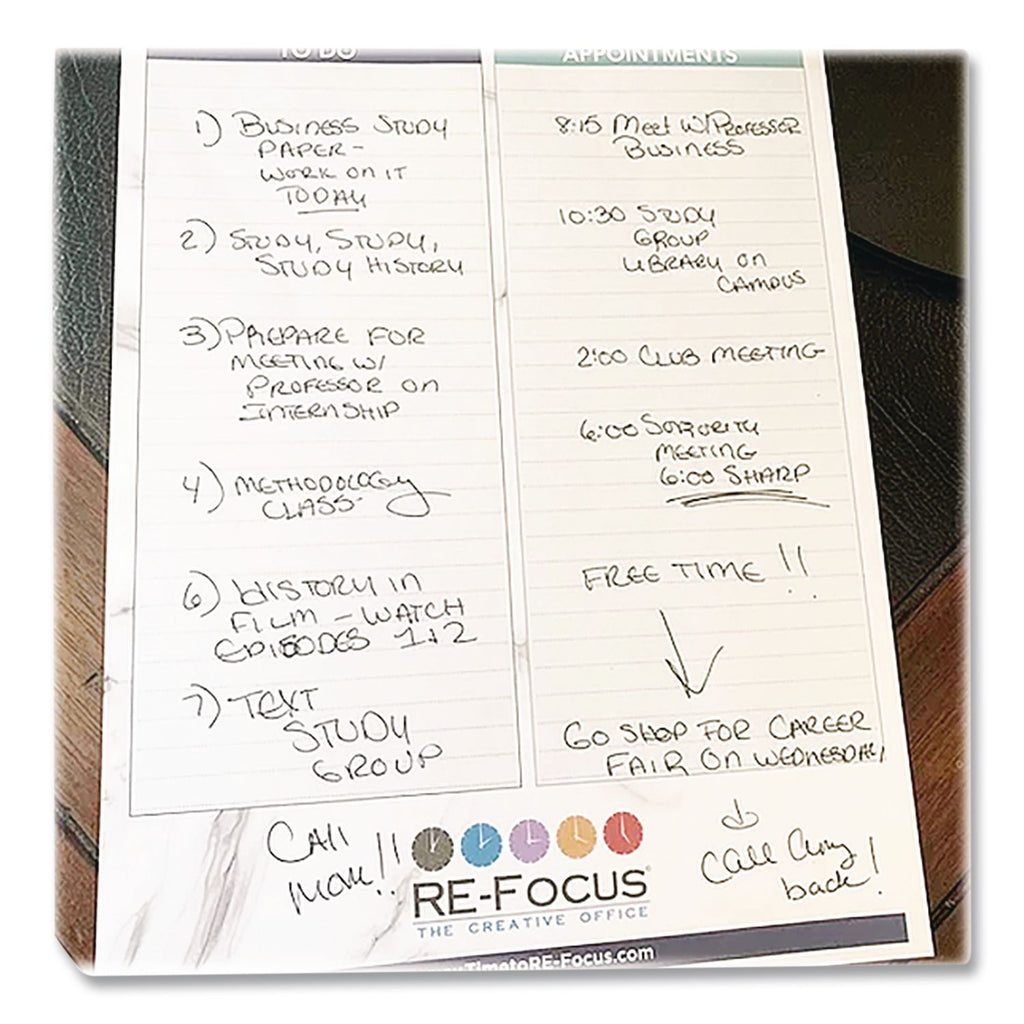 TO DO
1) BUSINESS STUDY
PAPER -
WORK ON IT
TODAY
2) STUDY, STUDY,
STUDY HISTORY
3) PREPARE FOR
MEETING W/
PROFESSOR ON
INTERNSHIP
4) METHODOLOGY
CLASS
6) HISTORY IN
FILM - WATCH
EPISODES 1+2
7) TEXT
STUDY
GROUP
APPOINTMENTS
8:15 Meet W/PROFESSOR
BUSINESS
10:30 STUDY
GROUP
LIBRARY ON
CAMPUS
2:00 CLUB MEETING
6:00 SORORITY
MEETING
6:00 SHARP
FREE TIME !!
GO SHOP FOR CAREER
FAIR ON WEDNESDAY
CALL
MOM!!
RE-FOCUS®
THE CREATIVE OFFICE
CALL Amy
back!
TimetoRE-Focus.com